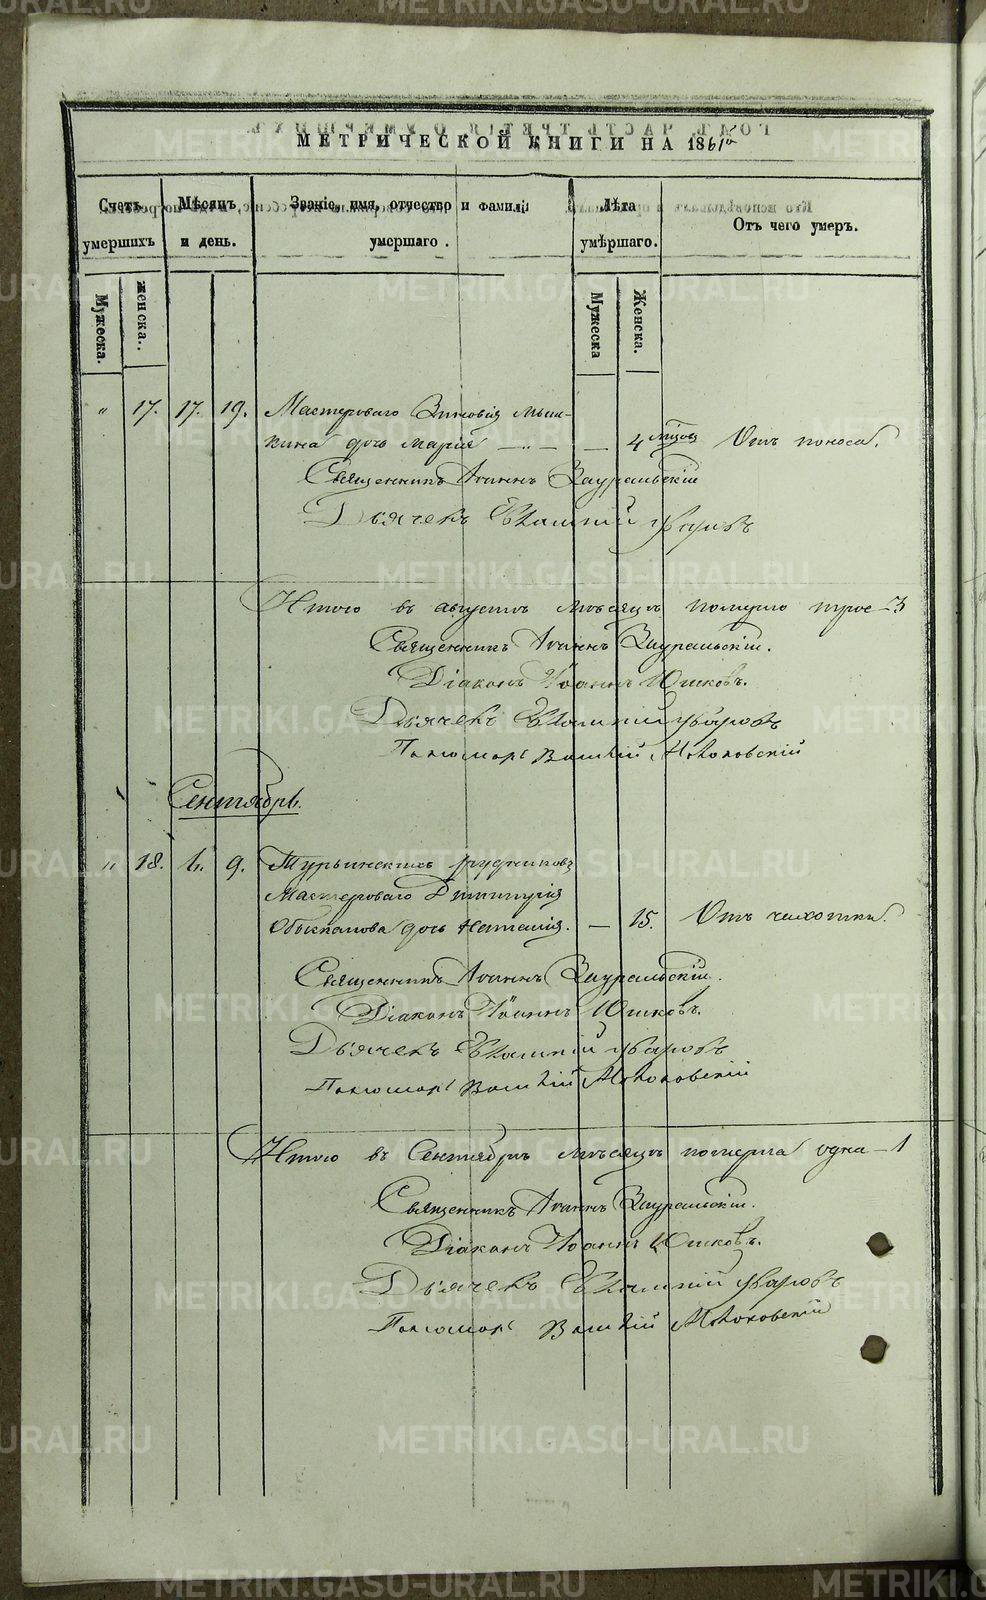 МЕТРИЧЕСКОЙ КНИГИ НА 1861й
Счетъ умершихъ
Мѣсяцъ и день.
Званіе, имя, отчество и фамилія умершаго.
Лѣта умѣршаго.
Отъ чего умеръ.
Мужеска.
женска.
Мужеска
Женска.
„ 17. 17. 19. Мастероваго Зиновія Мыш-
кина дочь Марія — — 4 мѣсяц Отъ поноса.
Священникъ Іоаннъ Зауральскій
Дьячекъ Евлампій Уваровъ
Итого въ августѣ мѣсяцѣ померло трое — 3
Священникъ Іоаннъ Зауральскій.
Діаконъ Іоаннъ Юшковъ.
Дьячекъ Евлампій Уваровъ
Пономарь Василій
Сентябрь.
„ 18. 6. 9. Турьинскихъ рудниковъ
Мастероваго Димитрія
дочь Наталія. — 15. Отъ чахотки.
Священникъ Іоаннъ Зауральскій.
Діаконъ Іоаннъ Юшковъ.
Дьячекъ Евлампій Уваровъ
Пономарь Василій
Итого въ Сентябрѣ мѣсяцѣ померла одна — 1
Священникъ Іоаннъ Зауральскій.
Діаконъ Іоаннъ Юшковъ.
Дьячекъ Евлампій Уваровъ
Пономарь Василій
METRIKI.GASO-URAL.RU